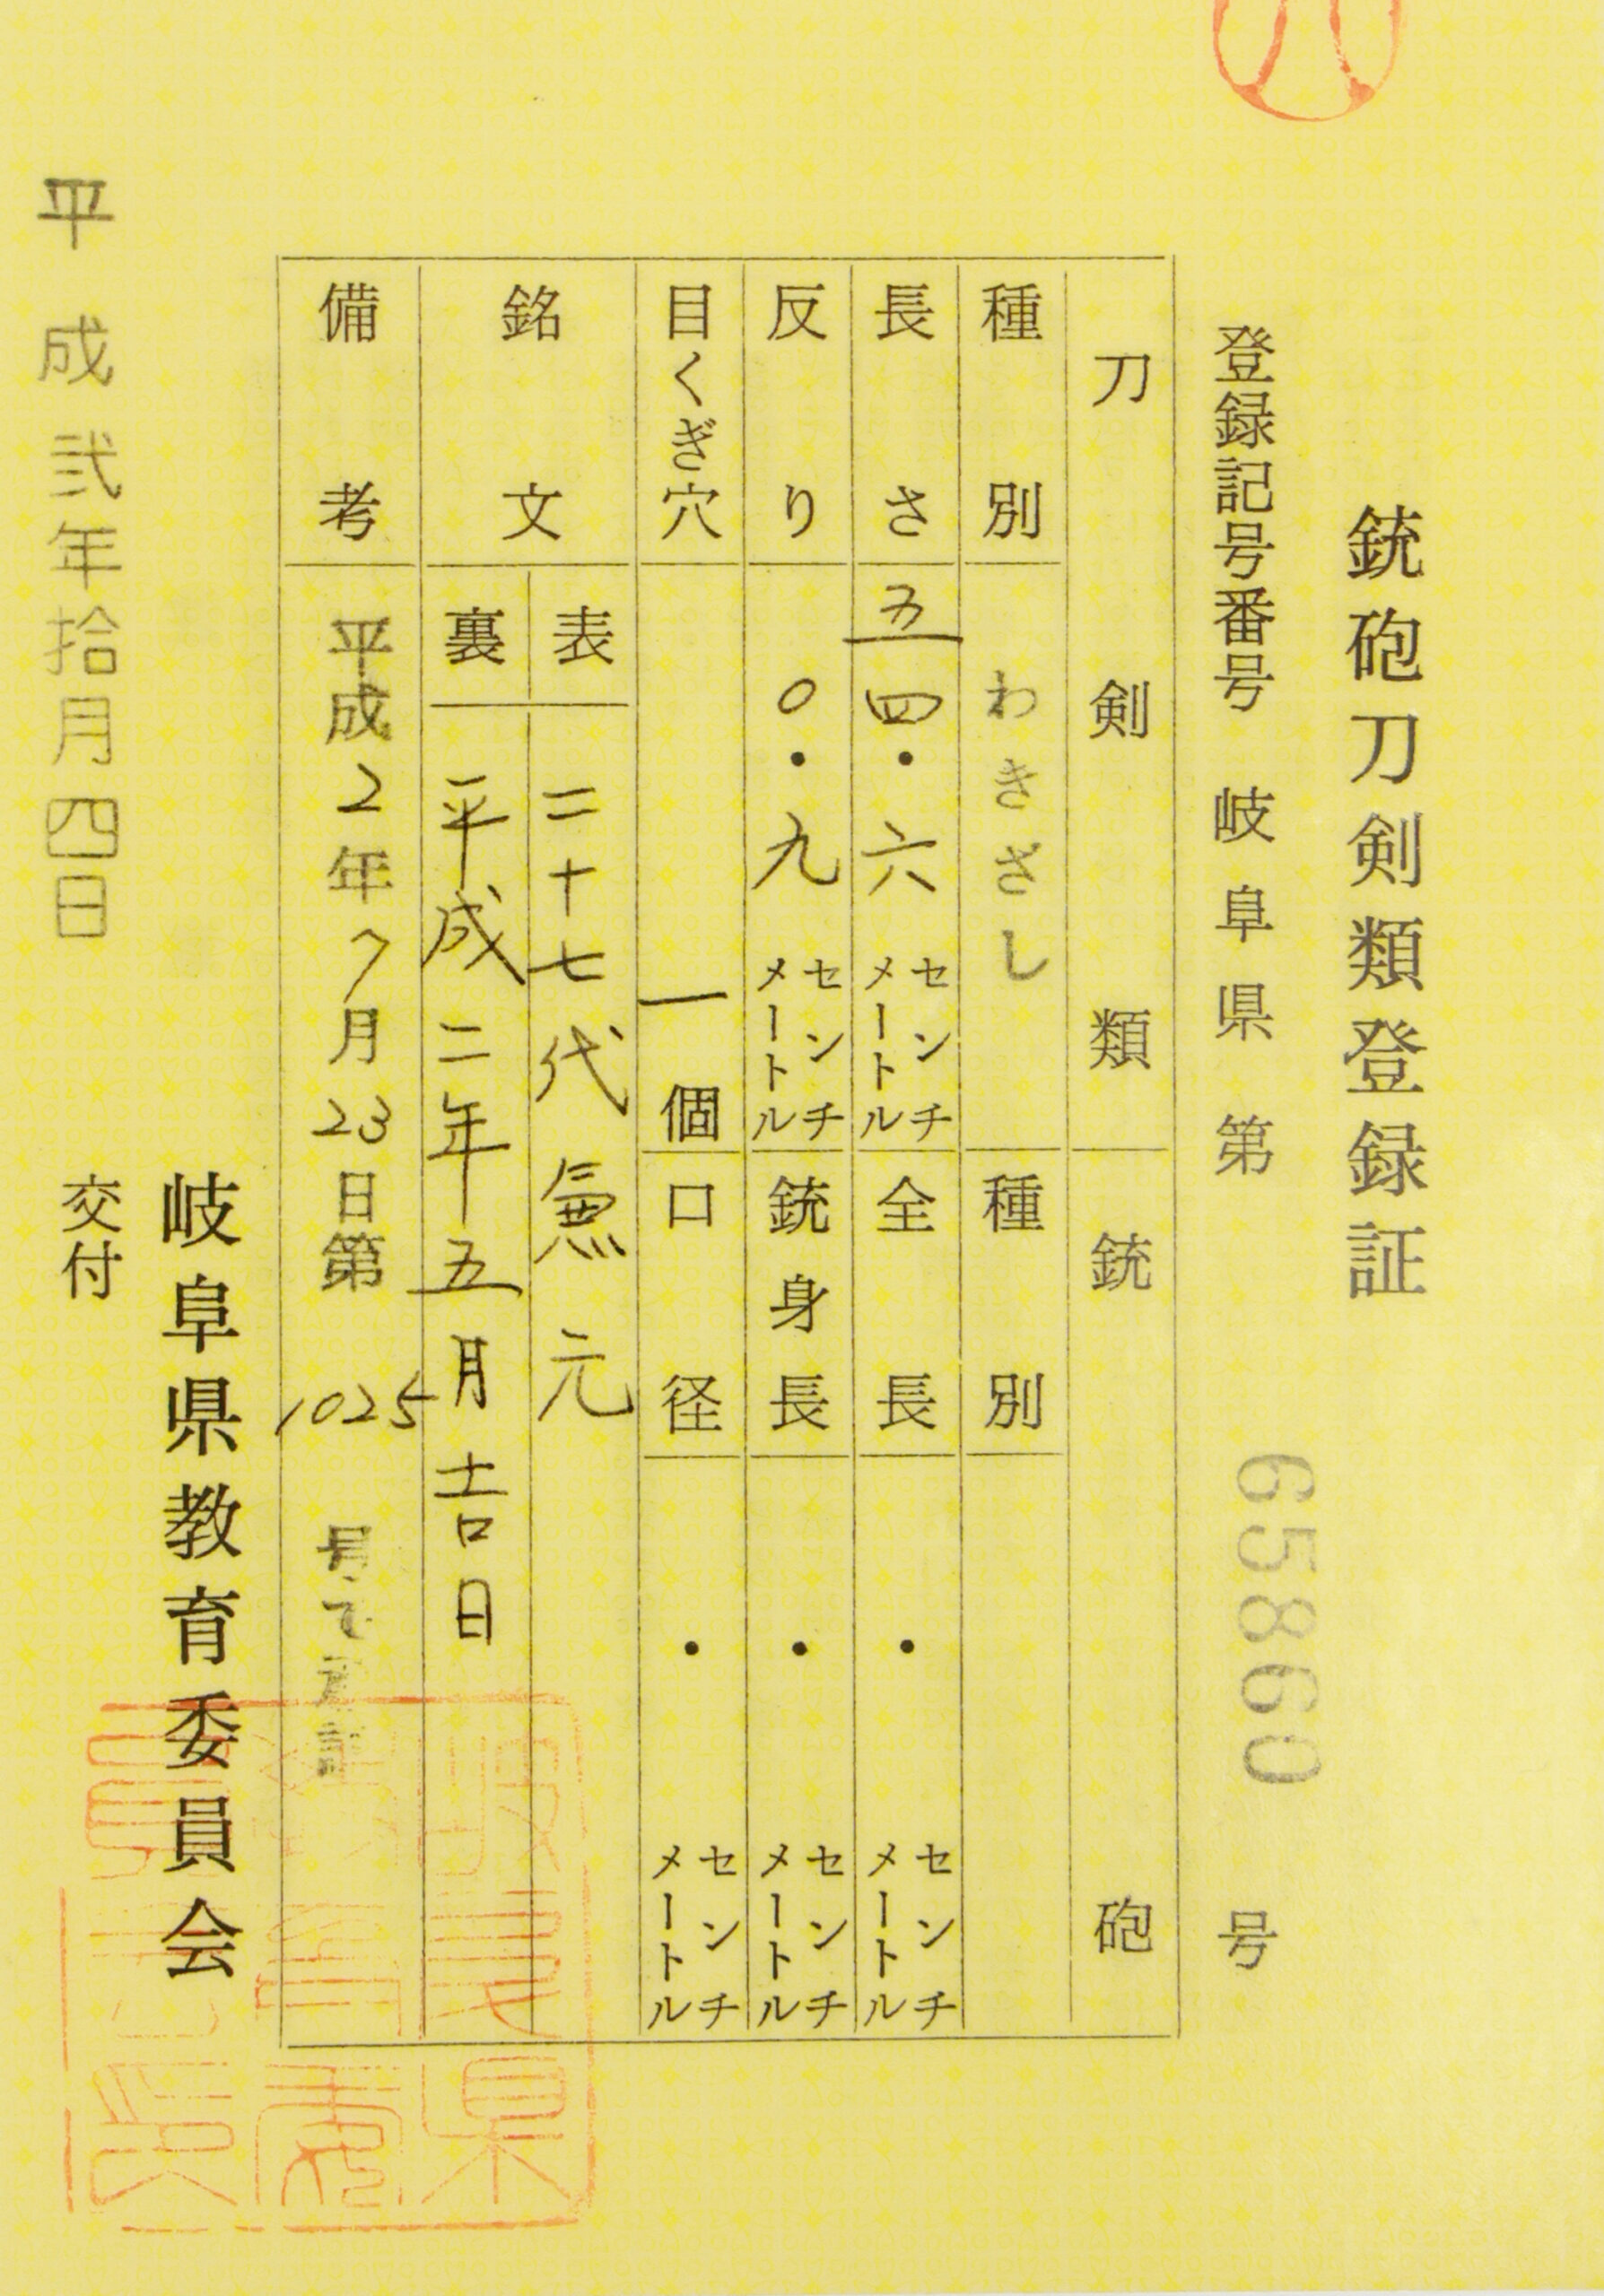 銃砲刀剣類登録証
登録記号番号 岐阜県 第 65860 号
刀剣類
銃砲
種別 わきざし
種別
長さ 五四・六 センチメートル
全長 ・ センチメートル
反り 〇・九 センチメートル
銃身長 ・ センチメートル
目くぎ穴 一個
口径 ・ センチメートル
銘文
表 二十七代兼元
裏 平成二年五月吉日
備考 平成2年7月23日第1025号で
岐阜県教育委員会
平成弐年拾月四日
交付